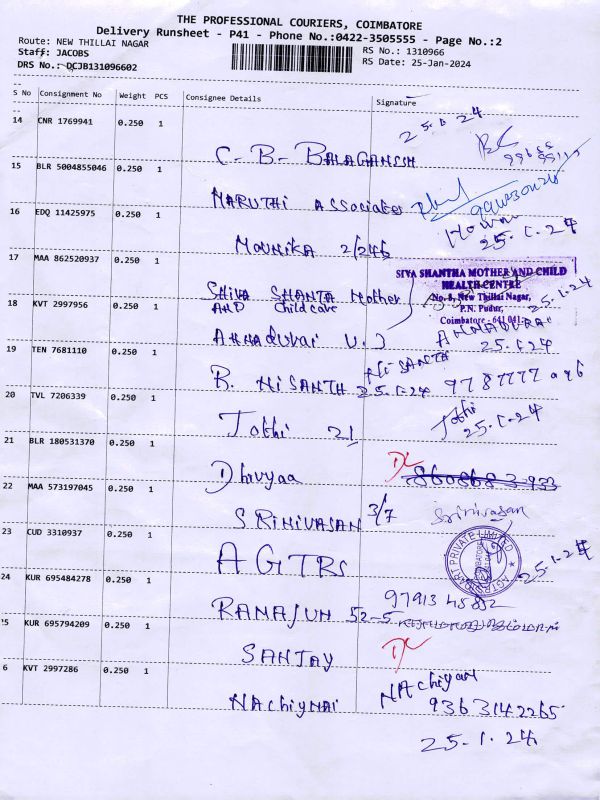 THE PROFESSIONAL COURIERS, COIMBATORE
Delivery Runsheet - P41 - Phone No.:0422-3505555 - Page No.:2
Route: NEW THILLAI NAGAR
Staff: JACOBS
DRS No.: DCJB131096602
RS No.: 1310966
RS Date: 25-Jan-2024
S No Consignment No Weight PCS Consignee Details Signature
14 CNR 1769941 0.250 1
25.1.24
C-B-BALAGANESH
15 BLR 5004855046 0.250 1
MARUTHI Associates
16 EDQ 11425975 0.250 1
25.1.24
MOUNIKA 2/246
17 MAA 862520937 0.250 1
SIVA SHANTHA MOTHER AND CHILD
HEALTH CENTRE
No. 8, New Thillai Nagar,
P.N. Pudur,
Coimbatore - 641 041
25.1.24
SHIVA SHANTA Mother
AND Child care
18 KVT 2997956 0.250 1
ANNADURAI
25.1.24
Annadurai V.J
19 TEN 7681110 0.250 1
NISANTH
25.1.24
R. NISANTH
20 TVL 7206339 0.250 1
Jothi
25.1.24
Jothi 21
21 BLR 180531370 0.250 1
DL
Dhivyaa
22 MAA 573197045 0.250 1
3/7 Srinivasan
SRINIVASAN
23 CUD 3310937 0.250 1
25.1.24
AGTRS
24 KUR 695484278 0.250 1
97913 45882
52-5
25 KUR 695794209 0.250 1
DL
SANJAY
6 KVT 2997286 0.250 1
NAchiyar
9363142265
NAchiyNAi
25.1.24